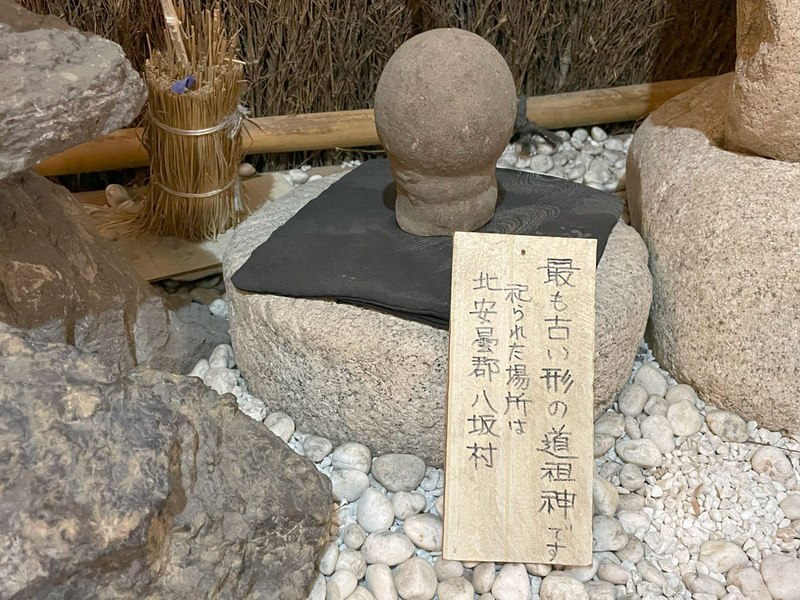 最も古い形の道祖神です
祀られた場所は
北安曇郡八坂村